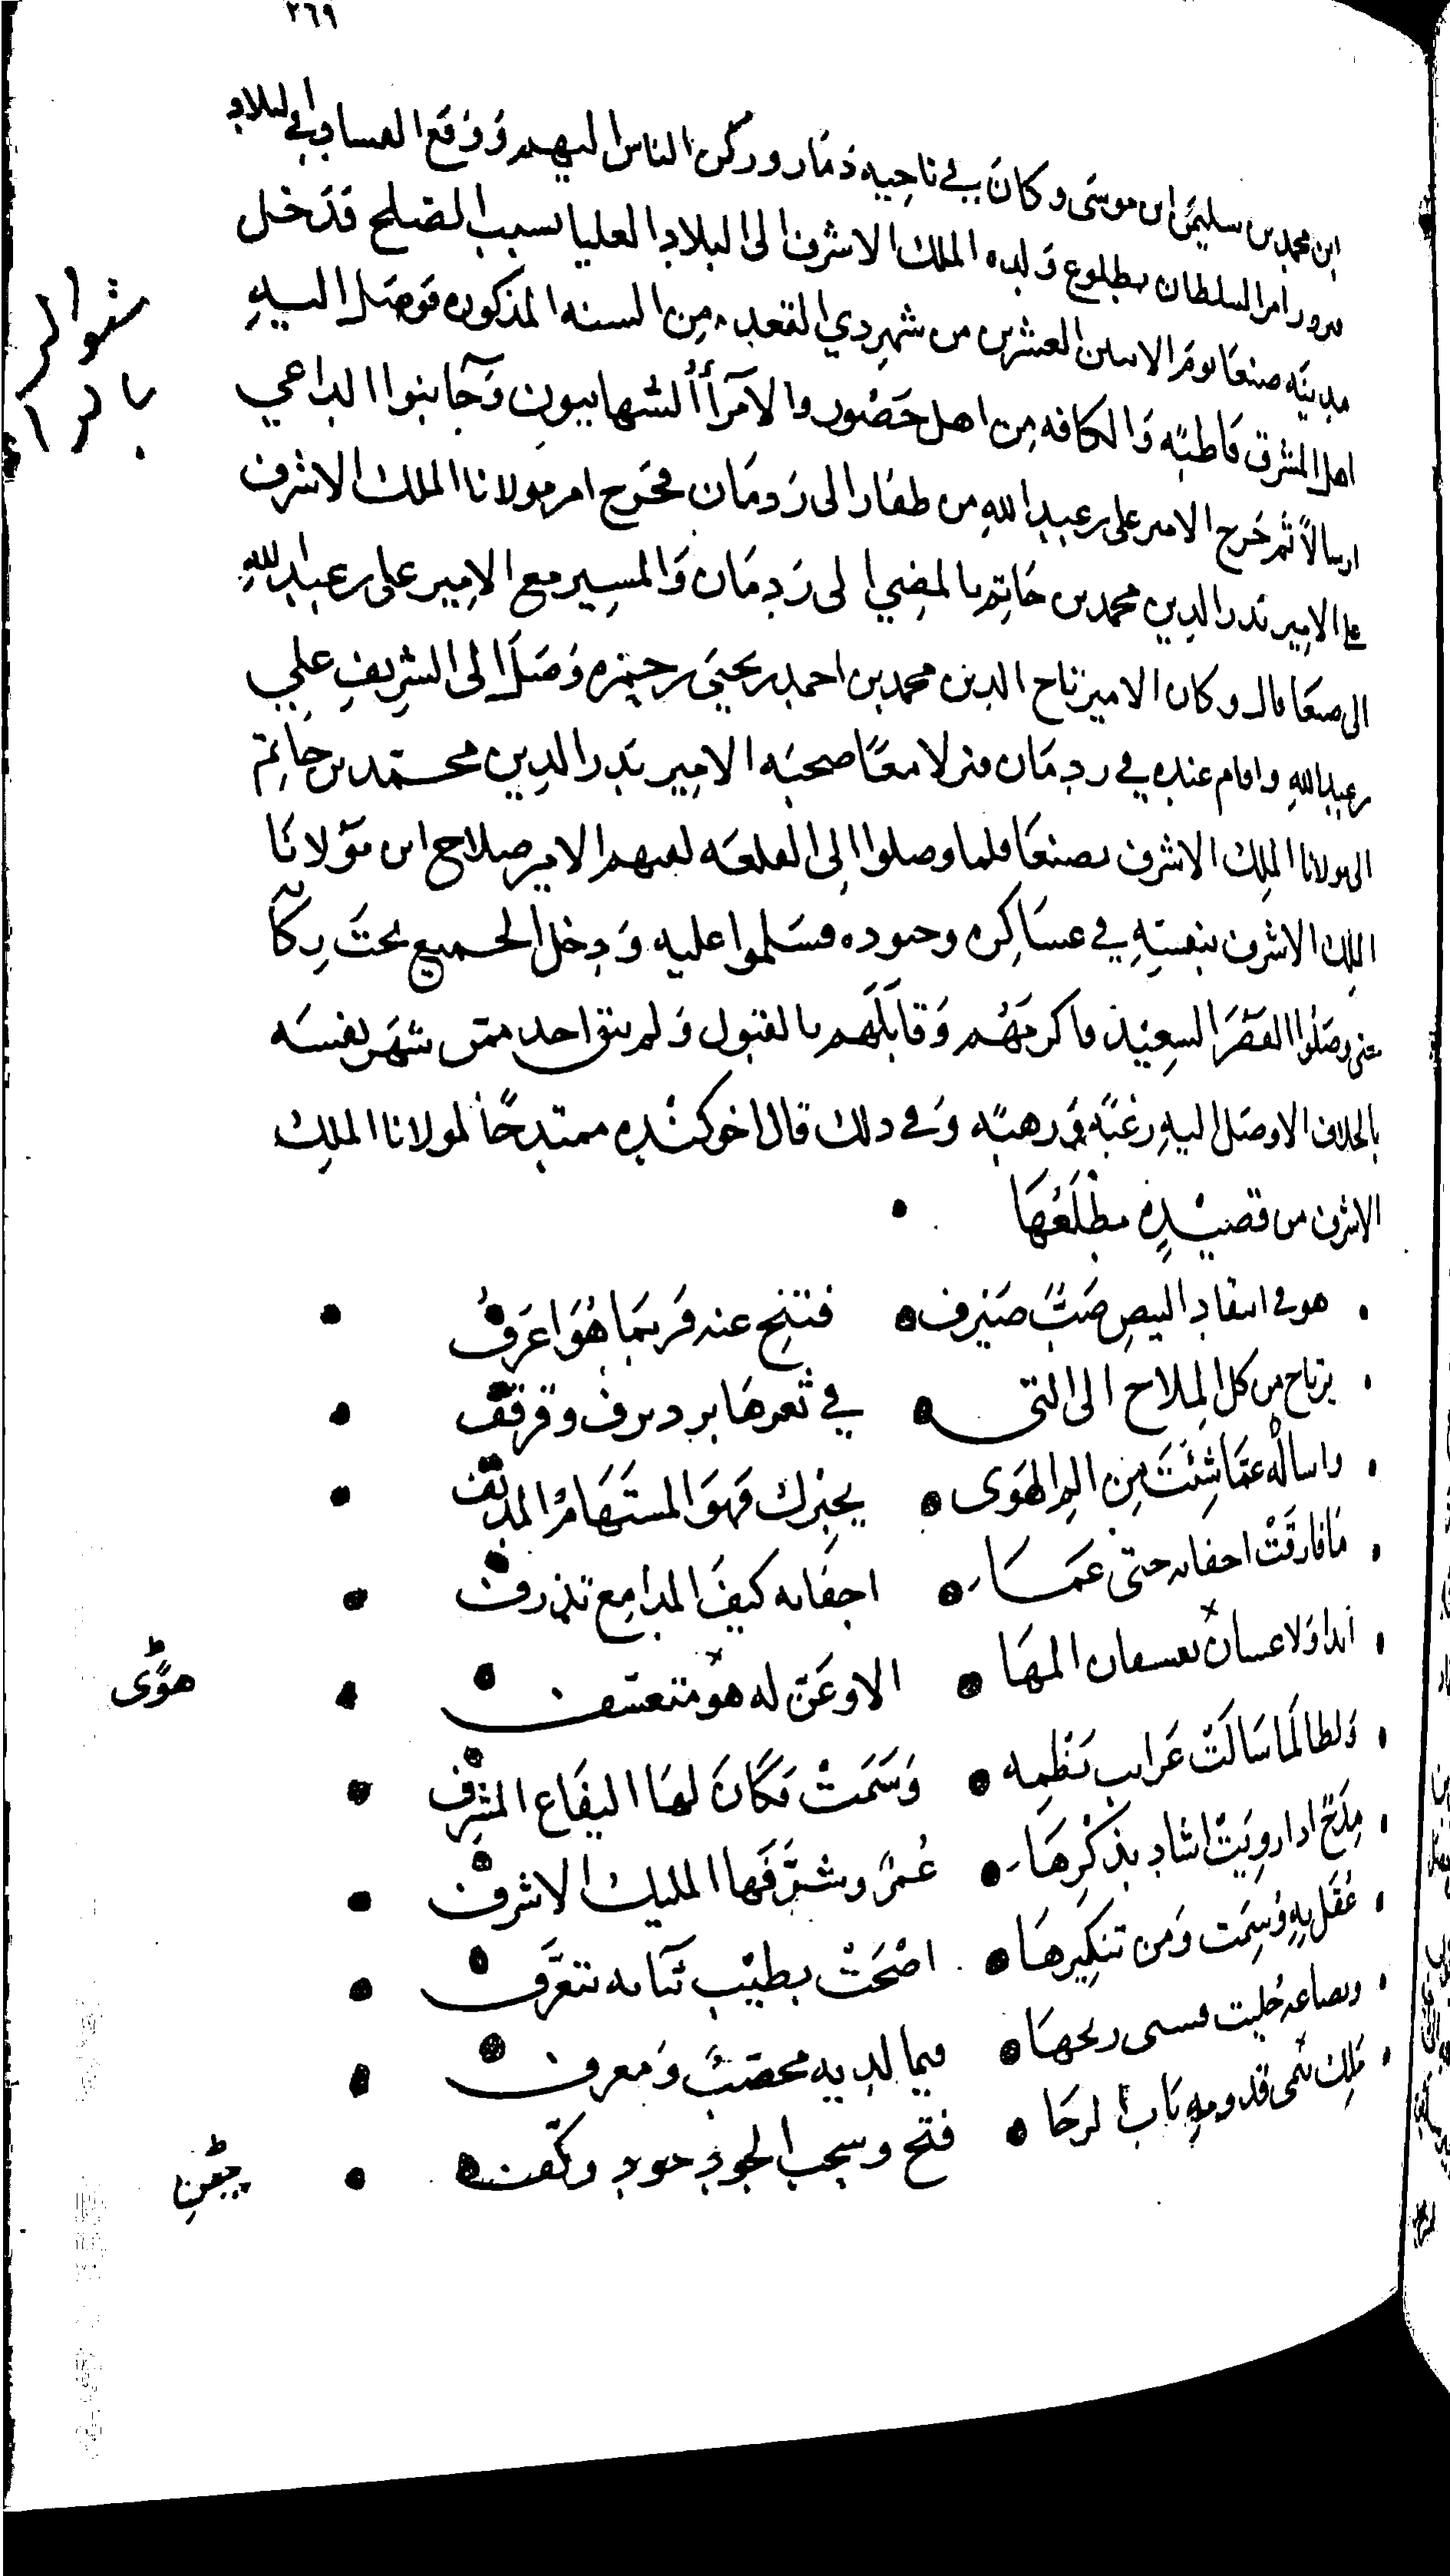 ٢٦٩
ابن محمد بن سليمن ابن موسى وكان في ناحيه ذمار وركن الناس اليهم ووقع الفساد في البلاد
امر السلطان بطلوع ولده الملك الاشرف الى البلاد العليا بسبب الصلح فدخل
مدينه صنعا يوم الاثنين العشرين من شهر ذي القعده من السنه المذكوره فوصل اليه
اهل المشرق قاطبه والكافه من اهل حضور والامرآء الشهابيون وجانبوا الداعي
ارسالاً ثم خرج الامير على بن عبد الله من ظفار الى ردمان فخرج امر مولانا الملك الاشرف
على الامير بدر الدين محمد بن حاتم بالمضي الى ردمان والمسير مع الامير على بن عبد الله
الى صنعا قال وكان الامير تاج الدين محمد بن احمد بن يحيى بن حمزه وصل الى الشريف علي
بن عبد الله واقام عنده في ردمان فنزلا معًا صحبه الامير بدر الدين محمد بن حاتم
الى مولانا الملك الاشرف بصنعا فلما وصلوا الى القلعه لقيهم الامير صلاح ابن مولانا
الملك الاشرف بنفسه في عساكره وجنوده فسلموا عليه ودخل الجميع تحت ركابه
حتى وصلوا القصر السعيد فاكرمهم وقابلهم بالقبول ولم يبق احد ممن شهر نفسه
بالخلاف الا وصل اليه رغبه ورهبه وفي ذلك قال اخو كنده ممتدحًا لمولانا الملك
الاشرف من قصيدهٍ مطلعها
هو في انتقاد البيض صب صيرف فتنح عنه فربما هو اعرف
يرتاح من كل الملاح الى التي في ثغرها برد يرف وقرقف
واساله عما شئت من الم الهوى يخبرك فهو المستهام المدنف
ما فارقت اجفانه حتى عما اجفانه كيف المدامع تذرف
المها الا وعن له هو متعسف
هوًى
ولطالما سالت غرايب نظمه وسمت فكان لها اليفاع المشرف
مدح اذا رويت اشاد بذكرها عمر وشرفها المليك الاشرف
غفل به وسمت ومن تنكيرها اضحت بطيب ثنايه تتعرف
وبضاعه جلبت ربحها فيما لديه محصب ومعرف
ملك قدومه باب الرجا فتح وسحب الجود جود وكف